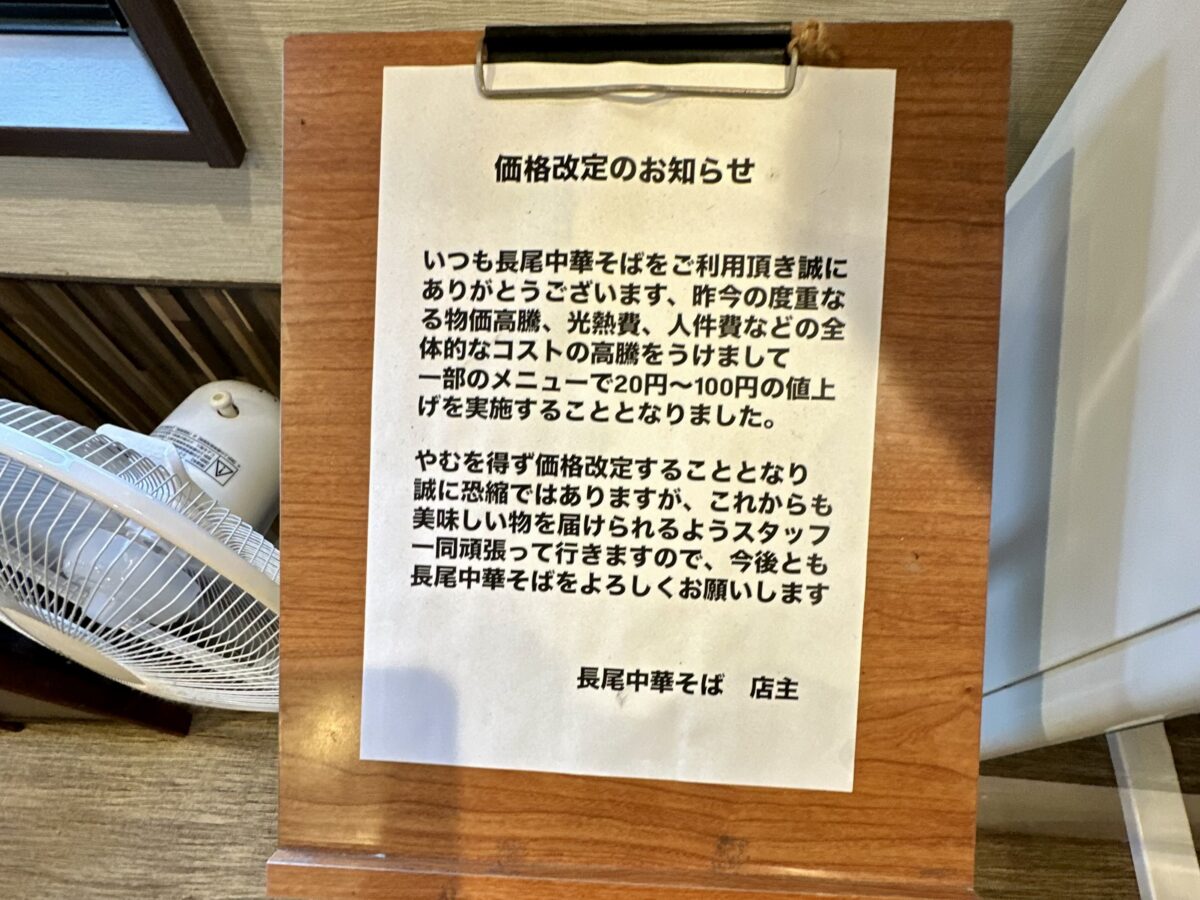 価格改定のお知らせ
いつも長尾中華そばをご利用頂き誠に
ありがとうございます、昨今の度重な
る物価高騰、光熱費、人件費などの全
体的なコストの高騰をうけまして
一部のメニューで20円〜100円の値上
げを実施することとなりました。
やむを得ず価格改定することとなり
誠に恐縮ではありますが、これからも
美味しい物を届けられるようスタッフ
一同頑張って行きますので、今後とも
長尾中華そばをよろしくお願いします
長尾中華そば　店主